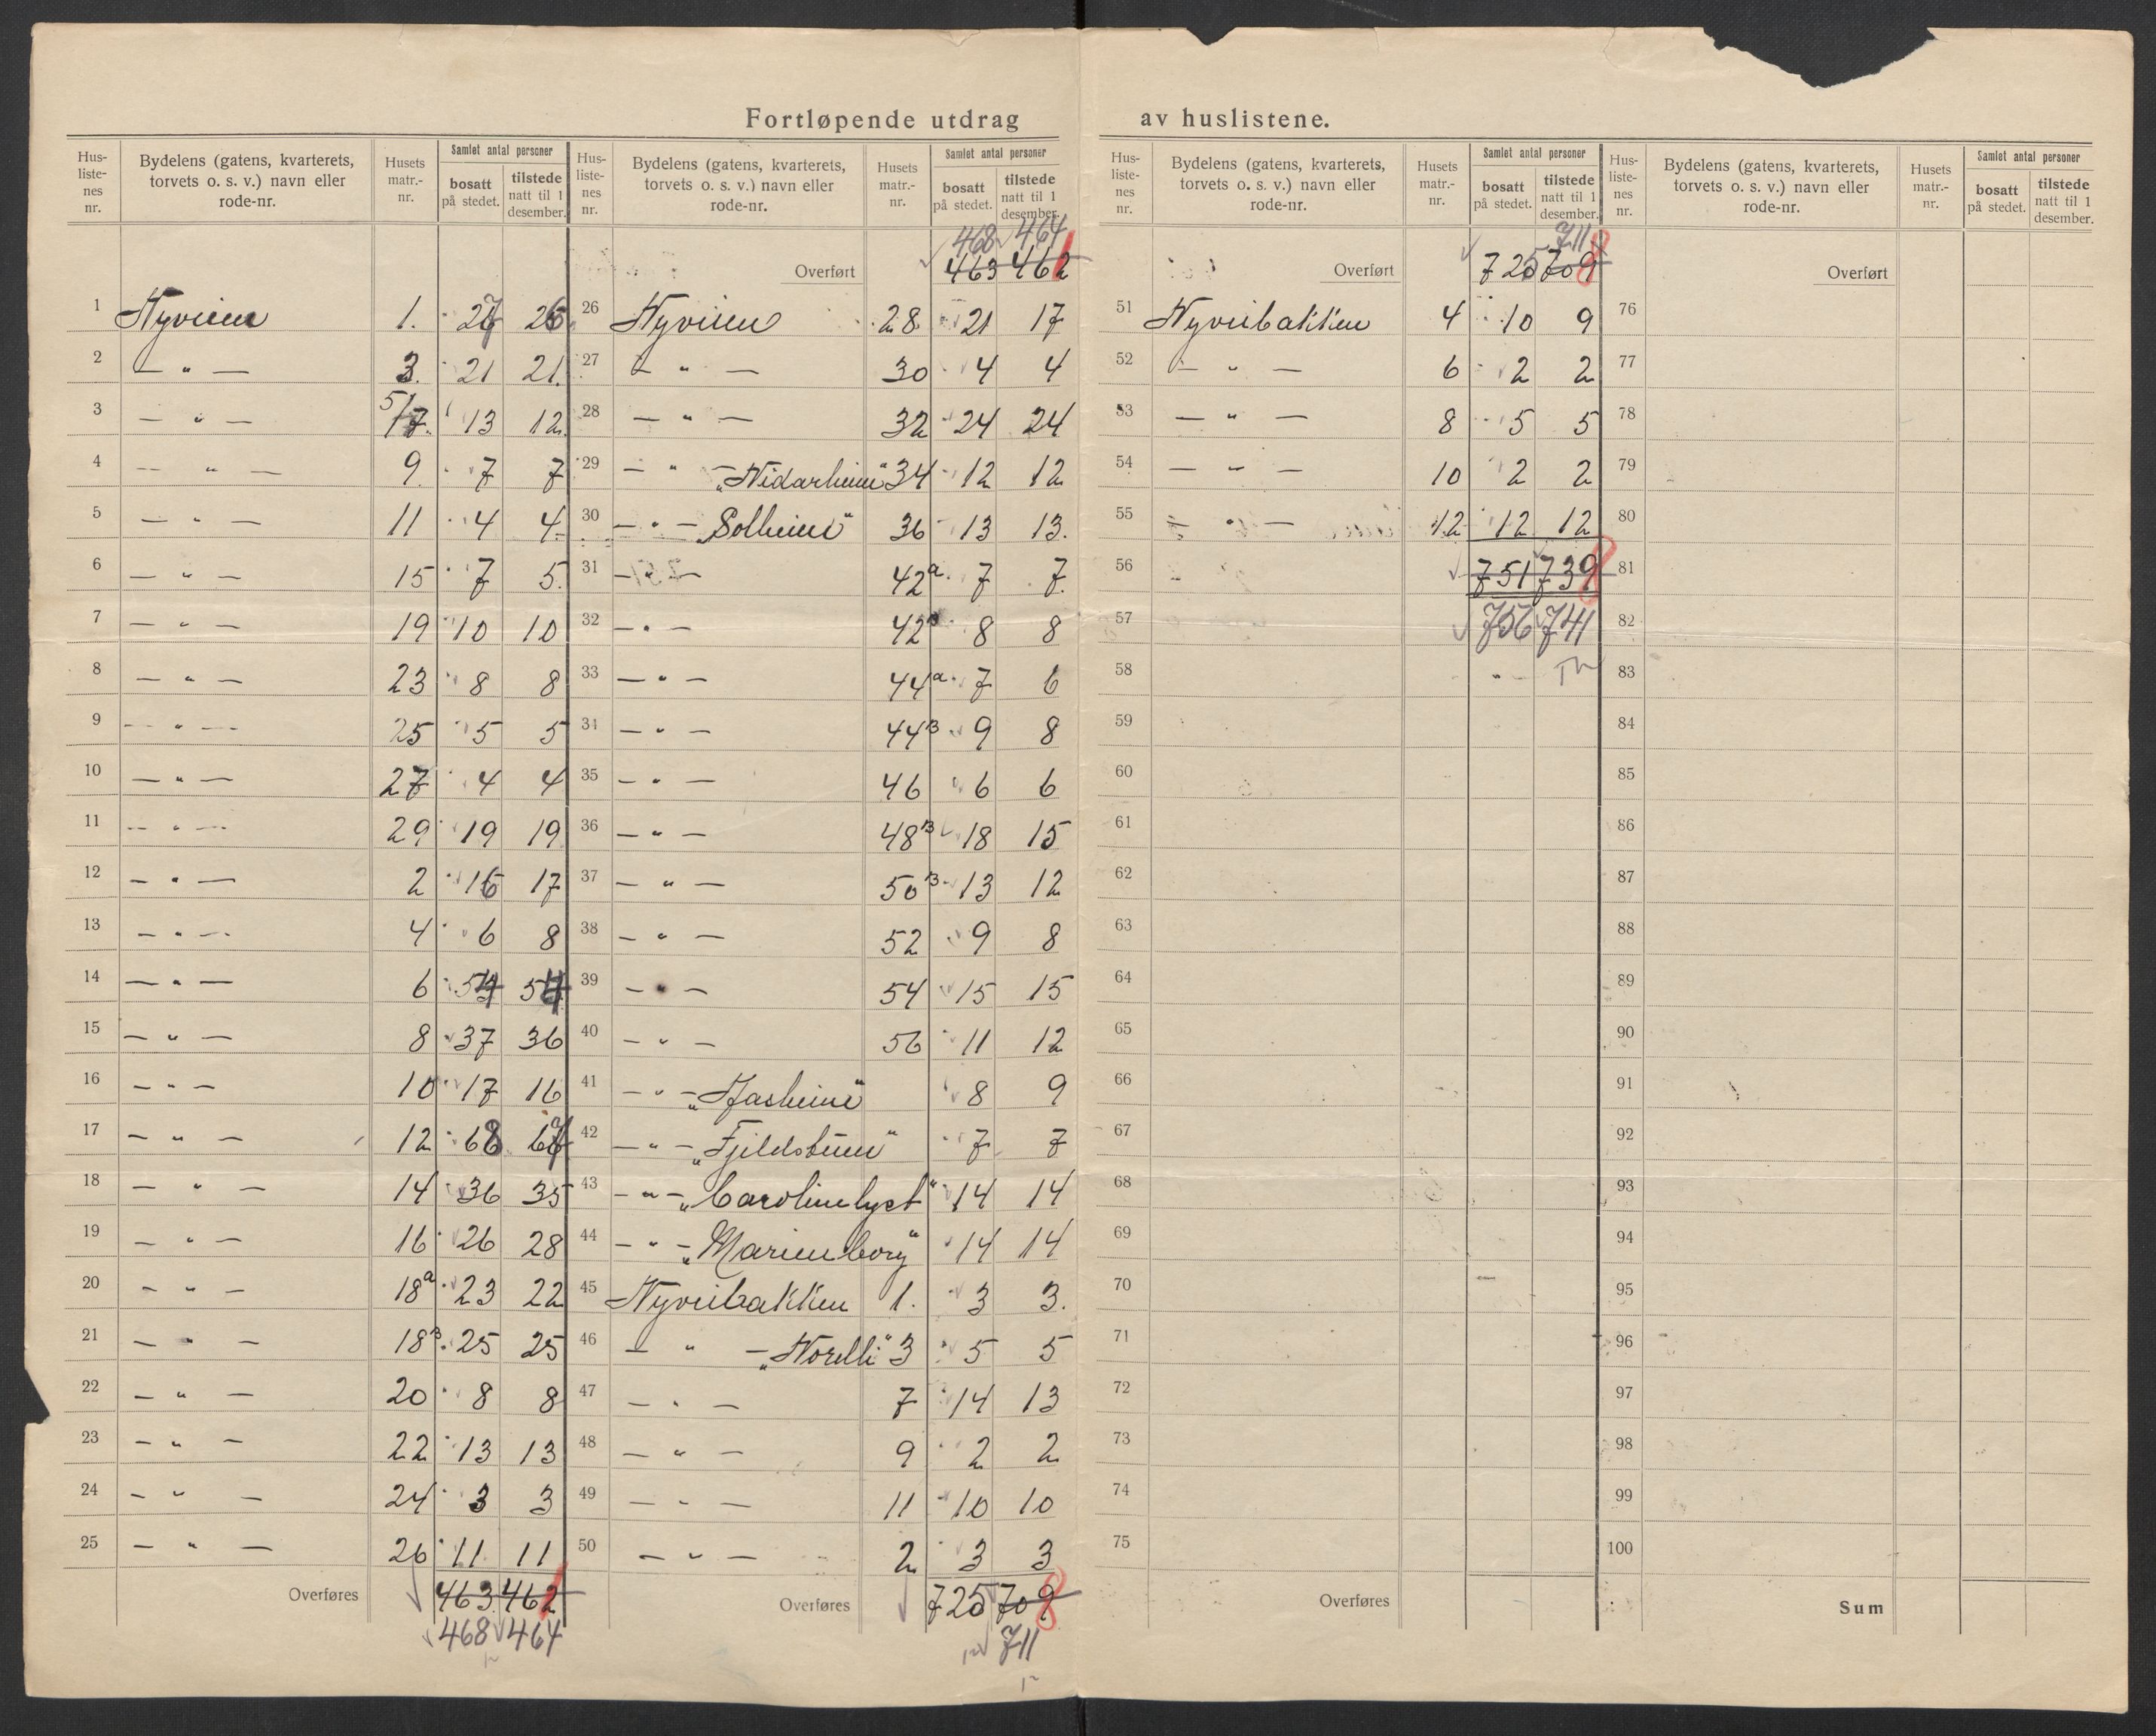 Fortløpende utdrag av huslistene.
Hus-listenes nr. | Bydelens (gatens, kvarterets, torvets o. s. v.) navn eller rode-nr. | Husets matr.-nr. | Samlet antal personer | bosatt på stedet. | tilstede natt til 1 desember.
1 Nyveien 1. 27 26
2 — " — 3. 21 21.
3 — " — 5/7. 13 12.
4 — " — 9. 7 7
5 — " — 11 4 4.
6 — " — 15 7 5.
7 — " — 19 10 10
8 — " — 23 8 8
9 — " — 25 5 5
10 — " — 27 4 4
11 — " — 29 19 19
12 — " — 2 16 17
13 — " — 4 6 8
14 — " — 6
15 — " — 8 37 36
16 — " — 10 17 16
17 — " — 12 68
18 — " — 14 36 35
19 — " — 16 26 28
20 — " — 18a 23 22
21 — " — 18B. 25 25
22 — " — 20 8 8
23 — " — 22 13 13
24 — " — 24 3 3
25 — " — 26 11 11
Overføres 463 462
468 464
Hus-listenes nr. | Bydelens (gatens, kvarterets, torvets o. s. v.) navn eller rode-nr. | Husets matr.-nr. | Samlet antal personer | bosatt på stedet. | tilstede natt til 1 desember.
468 464
Overført 463 462
26 Nyveien 28 21 17
27 — " — 30 4 4
28 — " — 32 24 24
29 — " — "Nidarheim" 34 12 12
30 — " — "Solheim" 36 13 13.
31 — " — 42a. 7 7.
32 — " — 42B 8 8
33 — " — 44a. 7 6
34 — " — 44B 9 8
35 — " — 46 6 6
36 — " — 48B 18 15
37 — " — 50B 13 12
38 — " — 52 9 8
39 — " — 54 15 15
40 — " — 56 11 12
41 — " — 8 9
42 — " — 7 7
43 — " — "Carolinelyst" 14 14
44 — " — "Marienborg" 14 14
45 Nyveibakken 1. 3 3.
46 — " — "Norelli" 3 5 5
47 — " — 7 14 13
48 — " — 9 2 2
49 — " — 11 10 10
50 — " — 2 3 3
Overføres 725 708
711
Hus-listenes nr. | Bydelens (gatens, kvarterets, torvets o. s. v.) navn eller rode-nr. | Husets matr.-nr. | Samlet antal personer | bosatt på stedet. | tilstede natt til 1 desember.
711
Overført 725 708
51 Nyveibakken 4 10 9
52 — " — 6 2 2
53 — " — 8 5 5
54 — " — 10 2 2
55 — " — 12 12 12
56 751 738
57 756 741
58
59
60
61
62
63
64
65
66
67
68
69
70
71
72
73
74
75
Overføres
Hus-listenes nr. | Bydelens (gatens, kvarterets, torvets o. s. v.) navn eller rode-nr. | Husets matr.-nr. | Samlet antal personer | bosatt på stedet. | tilstede natt til 1 desember.
Overført
76
77
78
79
80
81
82
83
84
85
86
87
88
89
90
91
92
93
94
95
96
97
98
99
100
Sum